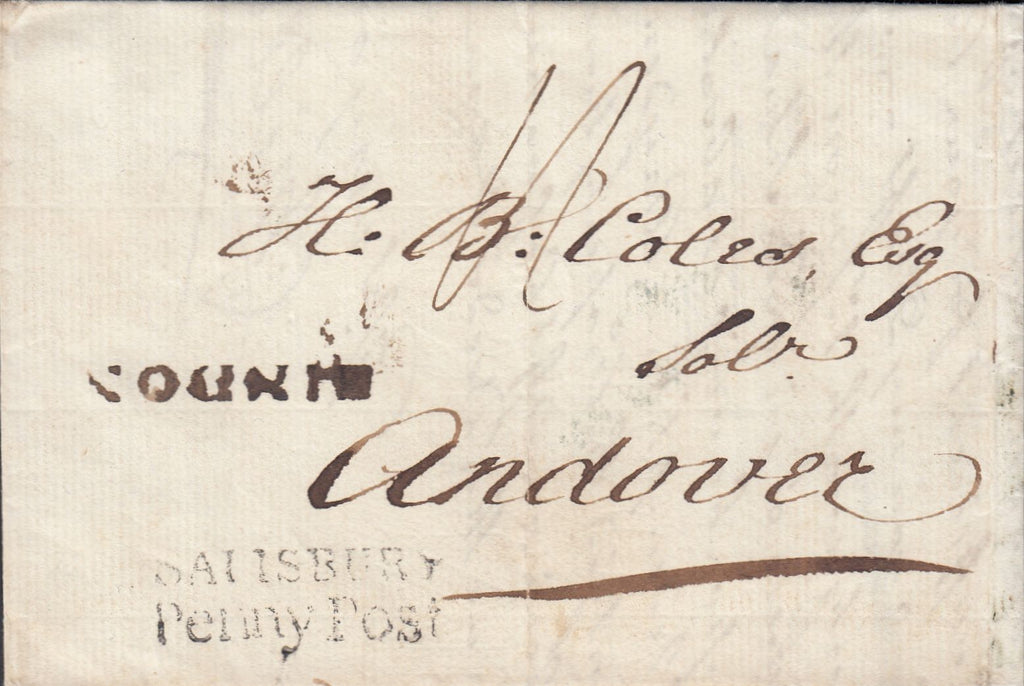 H. B: Coles, Esq
Solr
Andover
SALISBURY
Penny Post